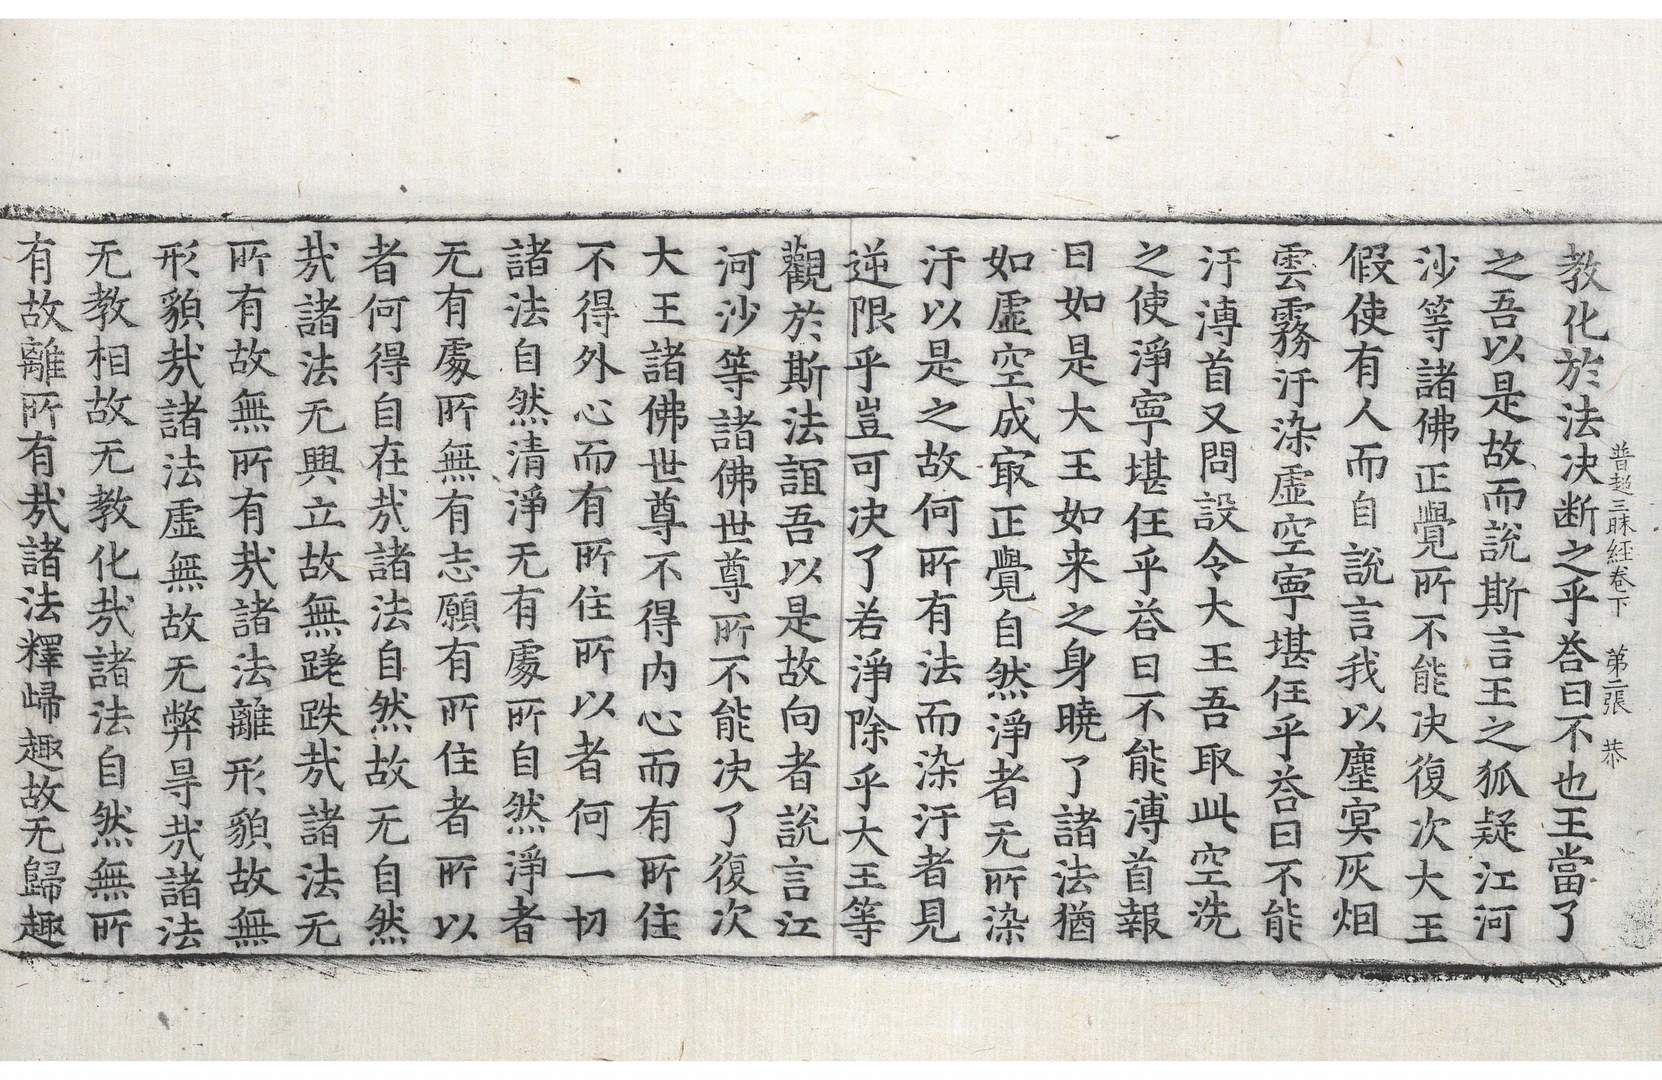 普超三昧經卷下　第二張　恭
教化於法决断之乎荅曰不也王當了
之吾以是故而說斯言王之狐疑江河
沙等諸佛正覺所不能决復次大王
假使有人而自說言我以塵冥灰烟
雲霧汙染虛空寧堪任乎荅曰不能
汙溥首又問設令大王吾取此空洗
之使淨寧堪任乎荅曰不能溥首報
曰如是大王如来之身曉了諸法猶
如虛空成㝡正覺自然淨者无所染
汙以是之故何所有法而染汙者見
逆限乎豈可决了若淨除乎大王等
觀於斯法誼吾以是故向者說言江
河沙等諸佛世尊所不能决了復次
大王諸佛世尊不得内心而有所住
不得外心而有所住所以者何一切
諸法自然清淨无有處所自然淨者
无有處所無有志願有所住者所以
者何得自在㢤諸法自然故无自然
㢤諸法无興立故無蹉跌㢤諸法无
所有故無所有㢤諸法離形貌故無
形貌㢤諸法虛無故无弊㝵㢤諸法
无教相故无教化㢤諸法自然無所
有故離所有㢤諸法釋歸趣故无歸趣